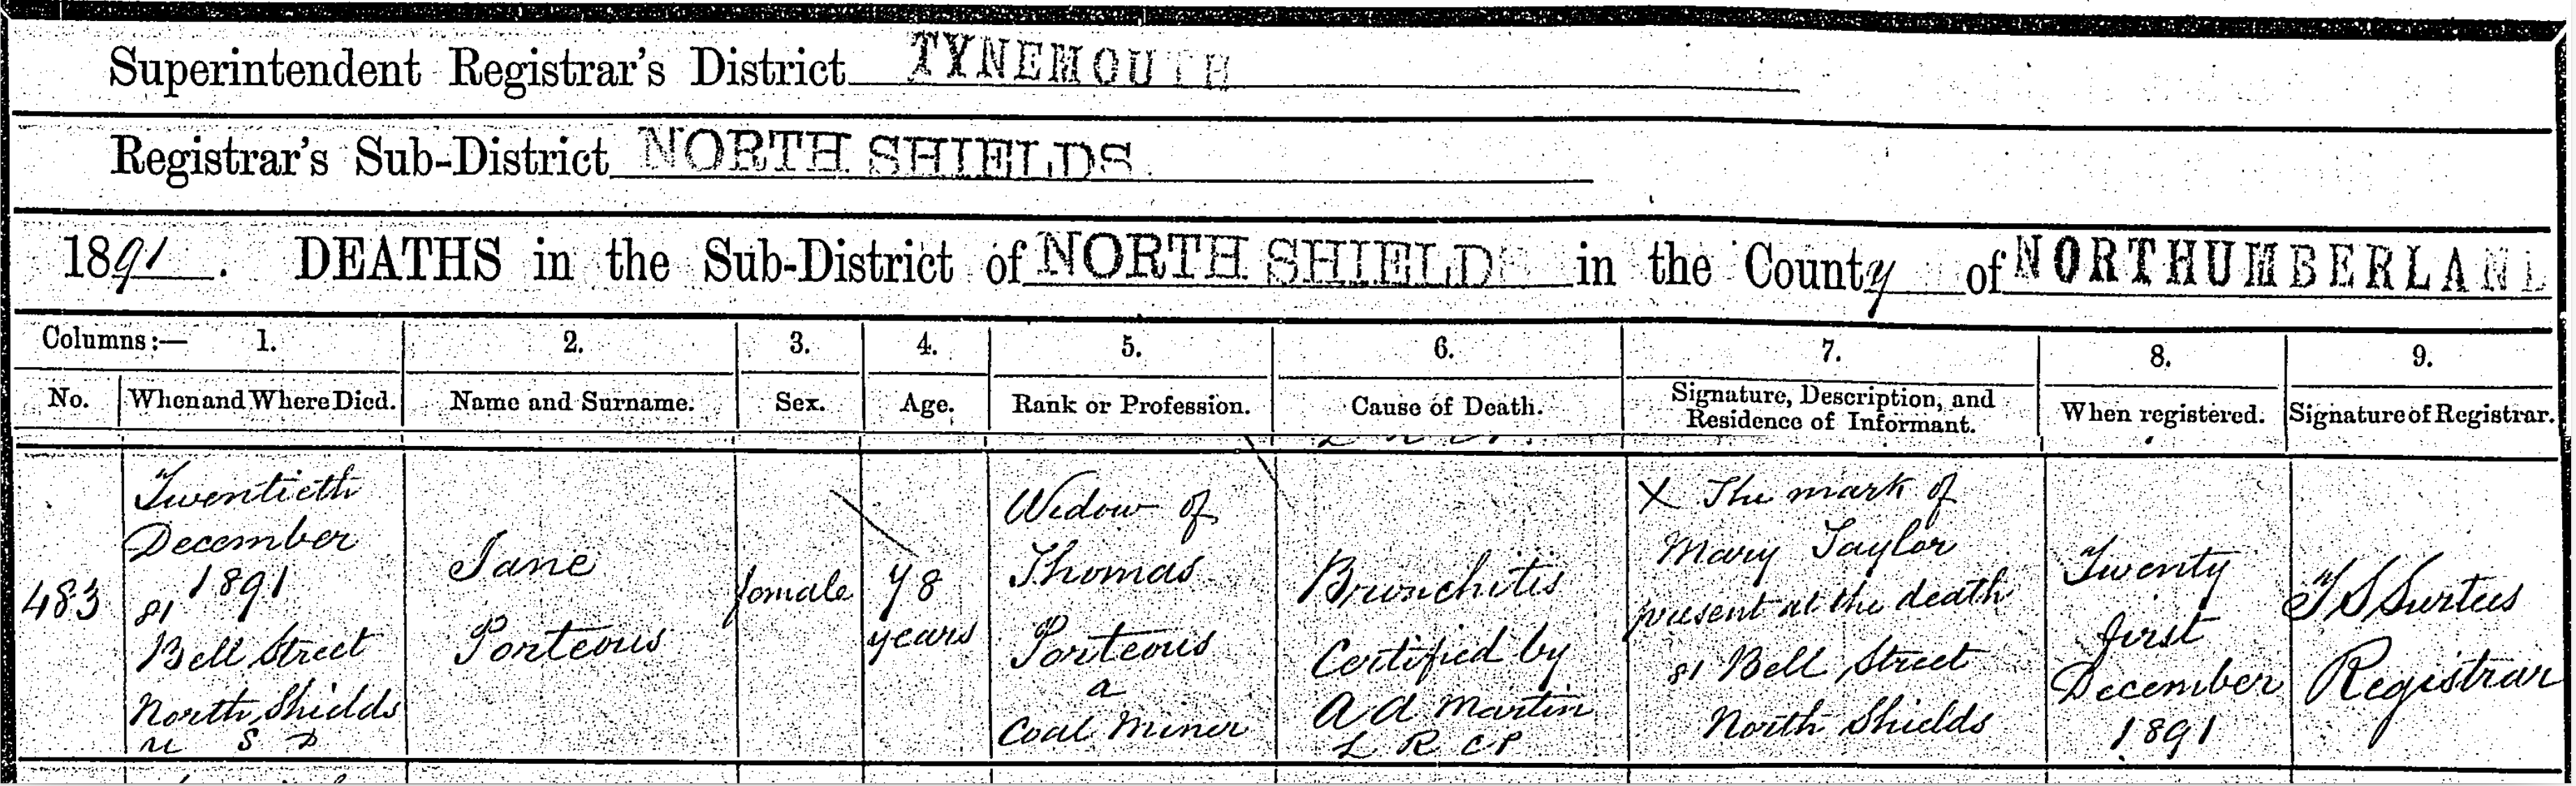 Superintendent Registrar's District TYNEMOUTH
Registrar's Sub-District NORTH SHIELDS
1891. DEATHS in the Sub-District of NORTH SHIELDS in the County of NORTHUMBERLAND
Columns:— 1. 2. 3. 4. 5. 6. 7. 8. 9.
No. When and Where Died. Name and Surname. Sex. Age. Rank or Profession. Cause of Death. Signature, Description, and Residence of Informant. When registered. Signature of Registrar.
483
Twentieth
December
1891
81
Bell Street
North Shields
U S D
Jane
Porteous
female
78
years
Widow of
Thomas
Porteous
a
Coal Miner
Bronchitis
Certified by
A D Martin
L R C P
X The mark of
Mary Taylor
present at the death
81 Bell Street
North Shields
Twenty
first
December
1891
T S Surtees
Registrar